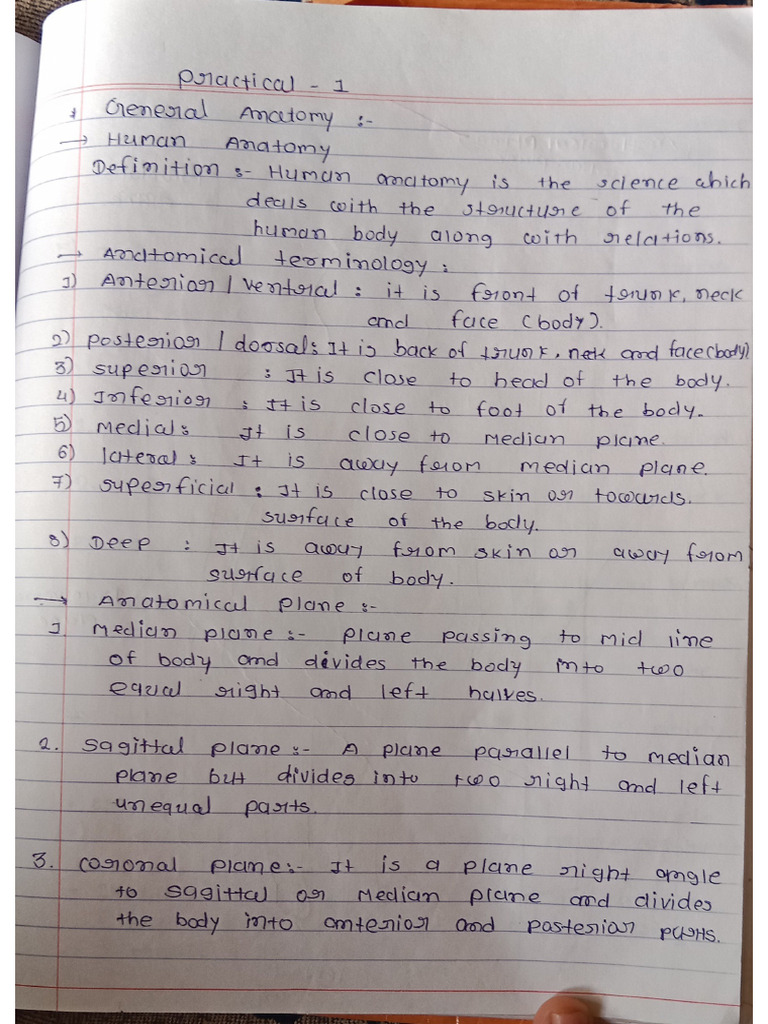 Practical - 1
* General Anatomy :-
→ Human Anatomy
Definition :- Human anatomy is the science which
deals with the structure of the
human body along with relations.
→ Anatomical terminology :
1) Anterior / ventral : it is front of trunk, neck
and face (body).
2) posterior / doosal : It is back of trunk, nek and face (body)
3) superior : It is close to head of the body.
4) Inferior : It is close to foot of the body.
5) medial : It is close to median plane.
6) lateral : It is away from median plane.
7) superficial : It is close to skin or towards.
surface of the body.
8) Deep : It is away from skin or away from
surface of body.
→ Anatomical plane :-
1 median plane :- plane passing to mid line
of body and divides the body into two
equal right and left halves.
2. sagittal plane :- A plane parallel to median
plane but divides into two right and left
unequal parts.
3. coronal plane :- It is a plane right angle
to sagittal or median plane and divides
the body into anterior and posterior parts.